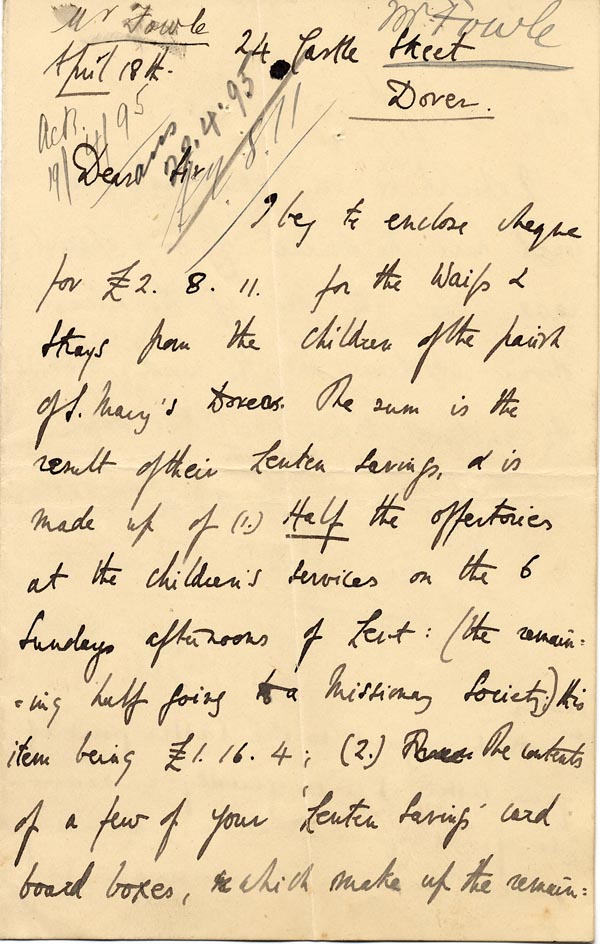 Mr Fowle
Mr Fowle
24 Castle Street
April 18th.
Dover.
Ackd.
19/4/95
ans
22.4.95
8.11
Dear Sir
I beg to enclose cheque
for £2. 8. 11. for the Waifs &
Strays from the children of the parish
of S. Mary's Dover. The sum is the
result of their Lenten savings, & is
made up of (1.) Half the offertories
at the children's services on the 6
Sundays afternoons of Lent: (the remain=
=ing half going to a Missionary Society;) this
item being £1. 16. 4; (2.) The contents
of a few of your 'Lenten Savings' card
board boxes, which make up the remain=